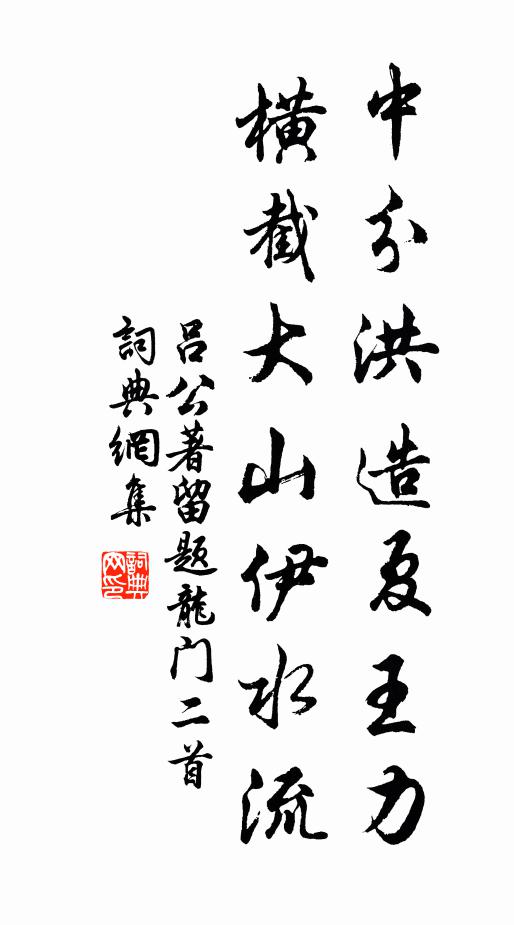 中分洪造夏王力
橫截大山伊水流
呂公著留題龍门二首
詞典網集
詞典
网印